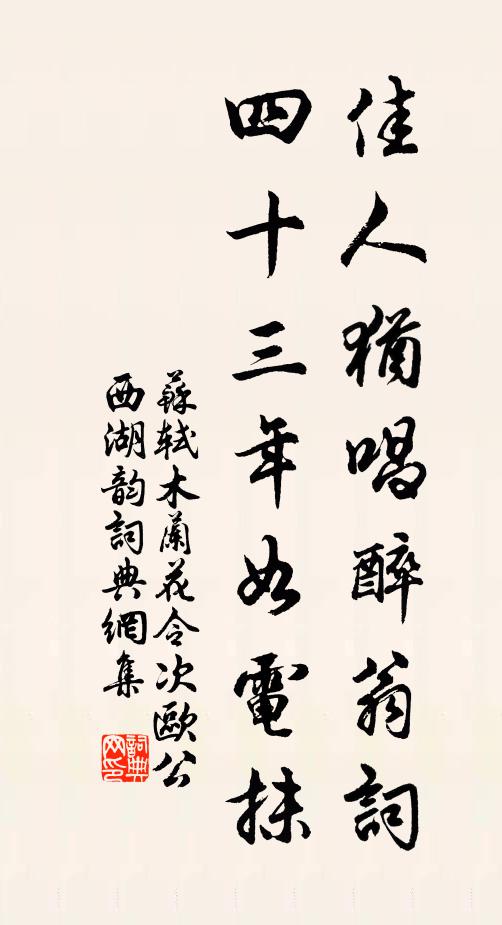 佳人猶唱醉翁詞
四十三年如電抹
蘇軾木蘭花令次歐公
西湖韵詞典網集
詞典网印